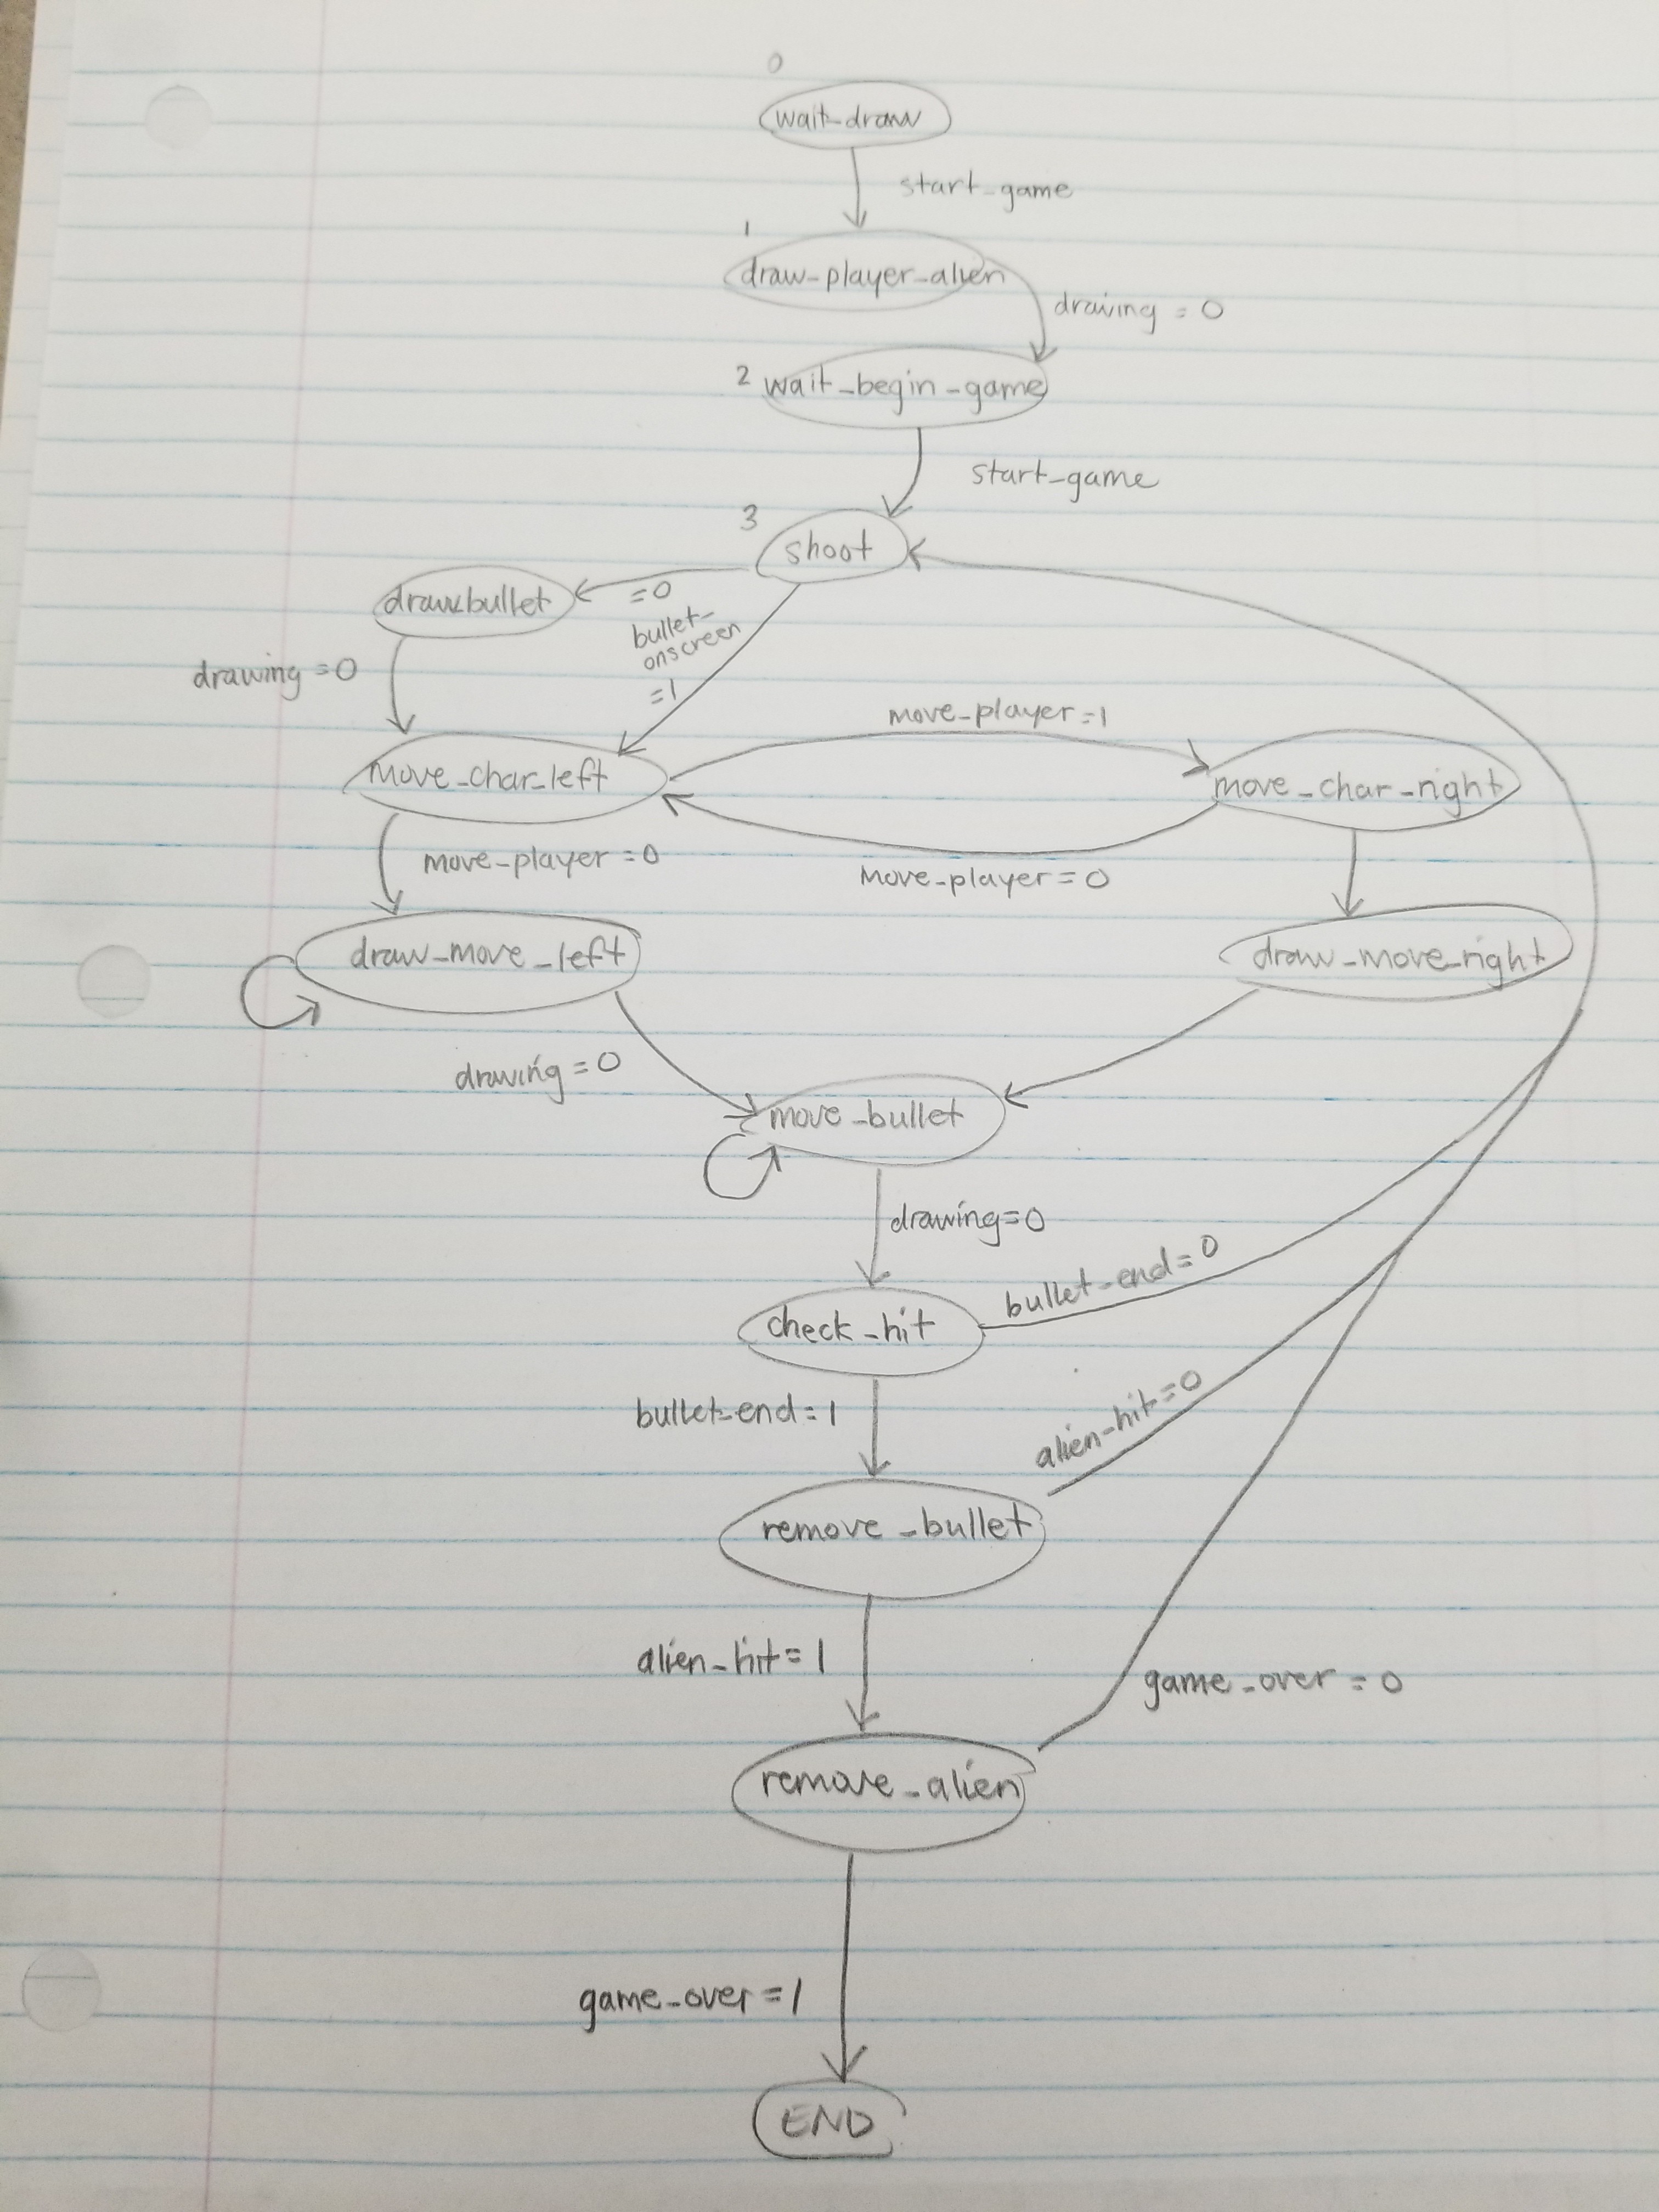 0
wait_draw
start_game
1
draw_player_alien
drawing = 0
2 wait_begin_game
start_game
3
shoot
draw_bullet
=0
bullet_
onscreen
=1
drawing =0
move_player=1
move_char_left
move_char_right
move_player =0
move_player= 0
draw_move_left
draw_move_right
drawing =0
move_bullet
drawing=0
check_hit
bullet_end=0
bullet_end=1
alien_hit=0
remove_bullet
alien_hit=1
game_over = 0
remove_alien
game_over =1
END